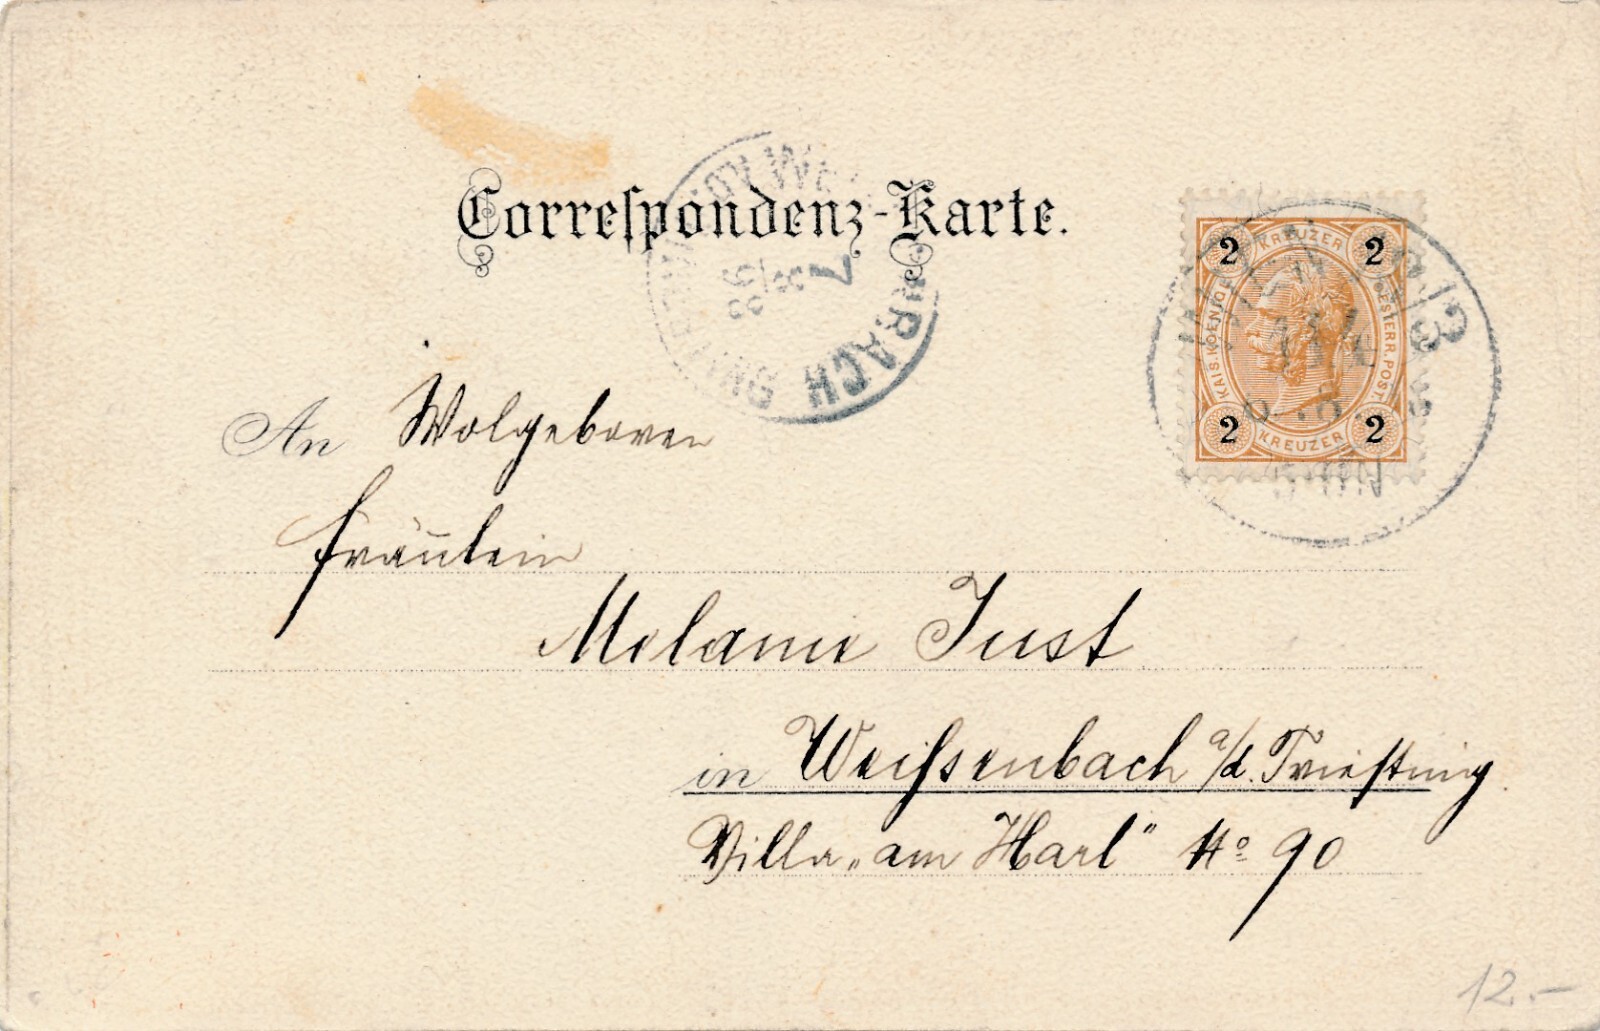 Correspondenz-Karte.
2 KREUZER 2
KAIS. KOENIGL. OESTERR. POST
2 KREUZER 2
WIEN
An Wolgeboren
Fräulein
Melanie Just
in Weißenbach a/d. Triesting.
Villa „am Harl“ No 90
12.-